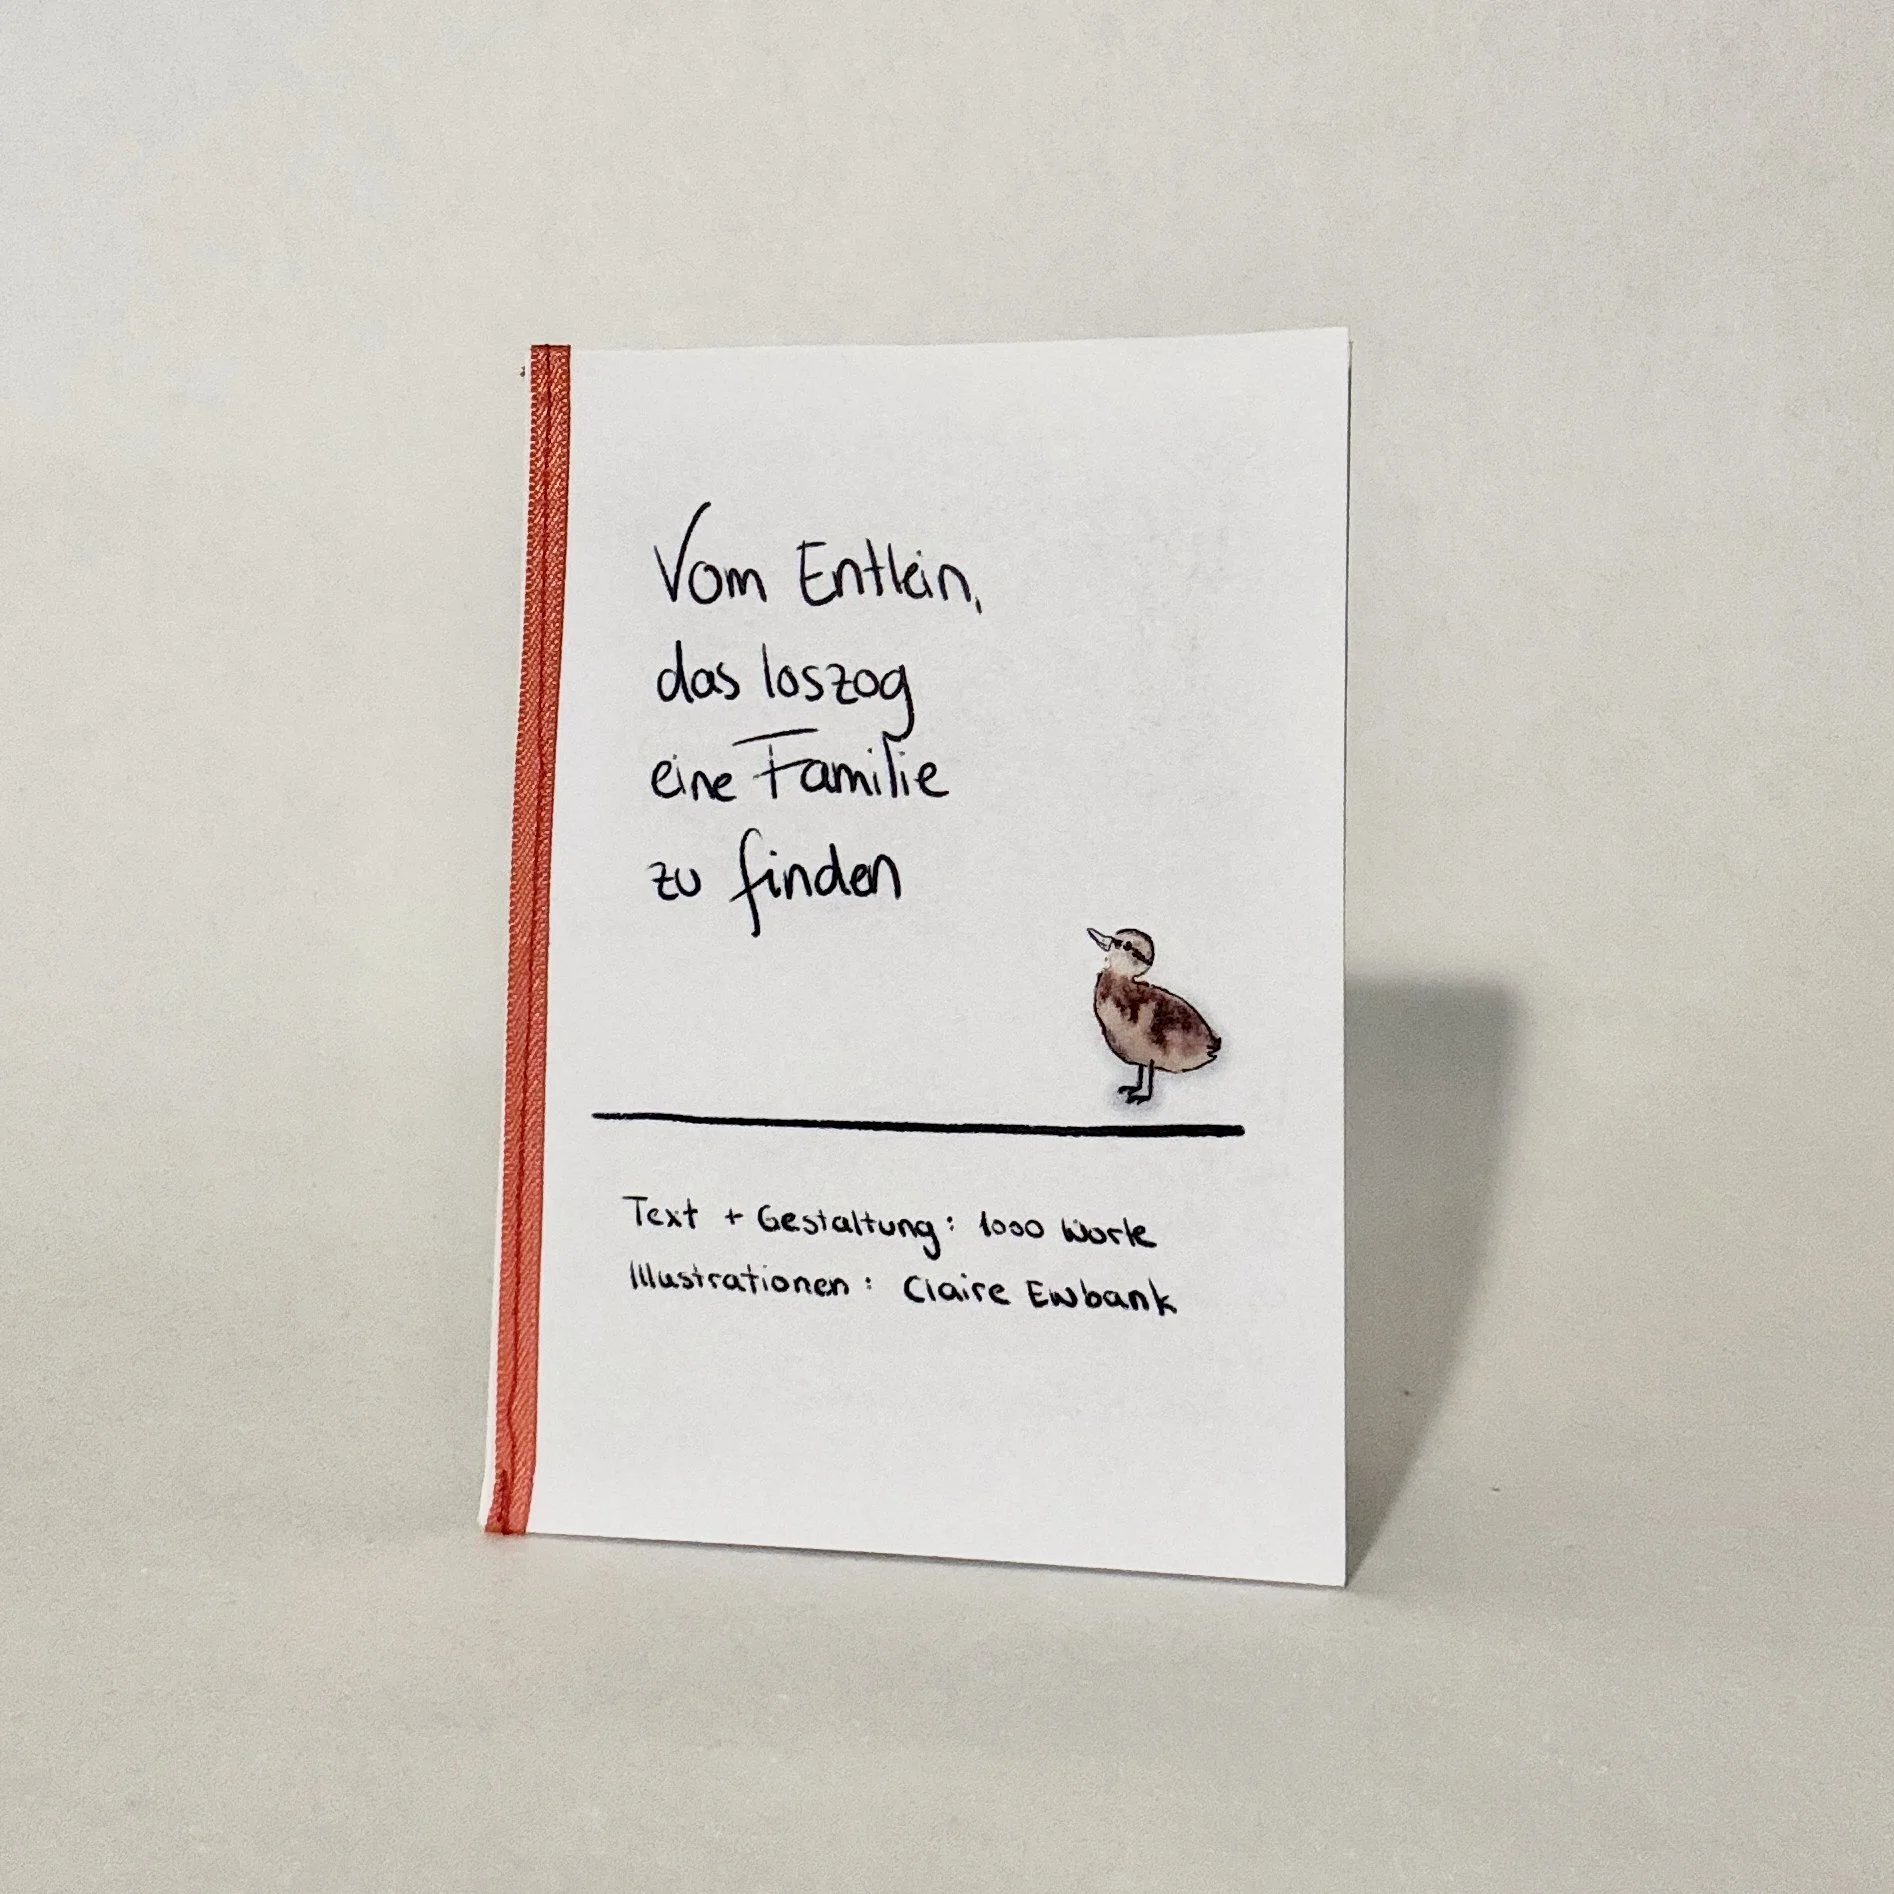 Vom Entlein,
das loszog
eine Familie
zu finden
Text + Gestaltung: 1000 Worte
Illustrationen: Claire Ewbank